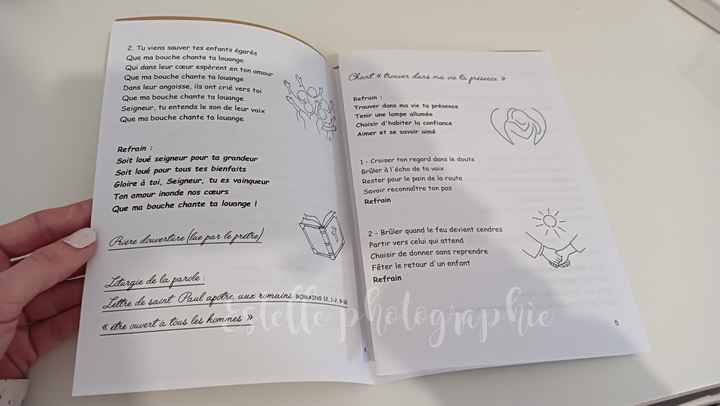 2. Tu viens sauver tes enfants égarés
Que ma bouche chante ta louange
Qui dans leur cœur espèrent en ton amour
Que ma bouche chante ta louange
Dans leur angoisse, ils ont crié vers toi
Que ma bouche chante ta louange
Seigneur, tu entends le son de leur voix
Que ma bouche chante ta louange
Refrain :
Soit loué seigneur pour ta grandeur
Soit loué pour tous tes bienfaits
Gloire à toi, Seigneur, tu es vainqueur
Ton amour inonde nos cœurs
Que ma bouche chante ta louange !
Prière d'ouverture (lue par le prêtre)
Liturgie de la parole :
Lettre de saint Paul apôtre aux romains ROMAINS 12,
« être ouvert à tous les hommes »
Chant « trouver dans ma vie ta présence »
Refrain :
Trouver dans ma vie ta présence
Tenir une lampe allumée
Choisir d'habiter la confiance
Aimer et se savoir aimé
1 - Croiser ton regard dans le doute
Brûler à l'écho de ta voix
Rester pour le pain de la route
Savoir reconnaître ton pas
Refrain
2 - Brûler quand le feu devient cendres
Partir vers celui qui attend
Choisir de donner sans reprendre
Fêter le retour d'un enfant
Refrain
5
Estelle photographie